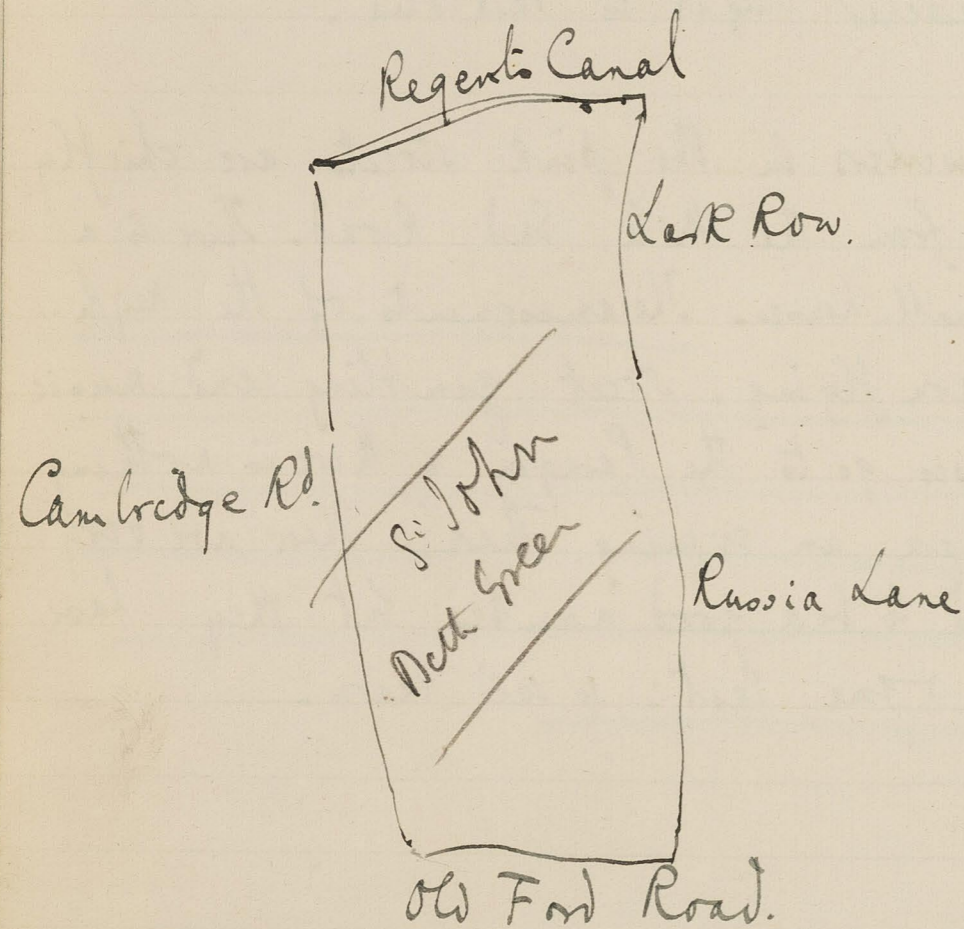 Regents Canal
Lark Row.
Cambridge Rd.
St John
Beth Green
Russia Lane
Old Ford Road.